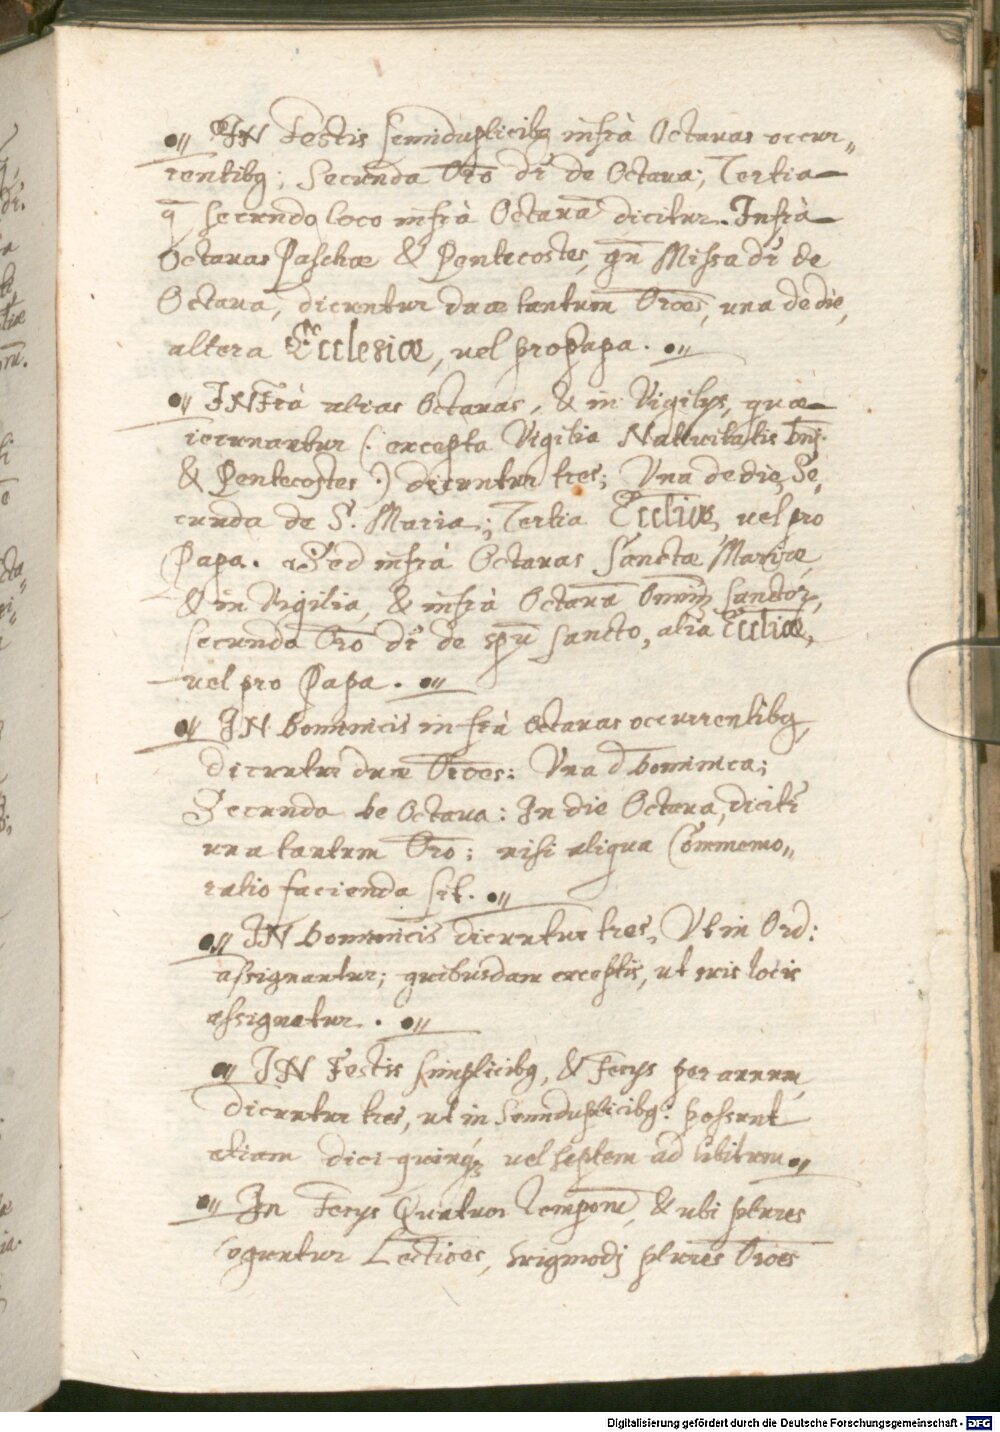 IN Festis Semiduplicibꝫ infrà Octauas occur„
rentibꝫ; Secunda Or̄o dr̄ de Octaua; Tertia
q̄ secundo loco infrà Octauā dicitur. Infrà
Octauas Paschæ & Pentecostes, qn̄ Missa dr̄ de
Octaua, dicuntur duæ tantum Or̄oes, una de die,
altera Ecclesiæ, uel pro Papa.
INFrà alias Octauas, & in Vigilijs, quæ
ieiunantur (: excepta Vigilia Natiuitatis Dn̄j.
& Pentecostes :) dicuntur tres; Vna de die, Se,
cunda de S. Maria; Tertia Eccl̄iæ, uel pro
Papa. Sed infrà Octauas Sanctæ Mariæ,
& in Vigilia, & infrà Octauā Omniū Sanctoꝝ,
secunda Or̄o dr̄ de spū sancto, alia Eccl̄iæ,
uel pro Papa.
IN Dominicis infrà Octauas occurrentibꝫ,
dicuntur duæ Or̄oes: Vna d Dominica;
Secunda de Octaua: In die Octaua, dicitr̄
una tantum Or̄o; nisi aliqua Commemo„
ratio facienda sit.
IN Dominicis dicuntur tres, Vt in Ord:
assignantur; quibusdam exceptis, ut suis locis
assignatur.
IN Festis simplicibꝫ, & Ferijs per annum,
dicuntur tres, ut in Semiduplicibꝫ: possunt
etiam dici quinqꝫ uel septem ad libitum
In Ferijs Quatuor Temporū, & ubi plures
leguntur Lectiões, huiꝰmodj plures Or̄oes
Digitalisierung gefördert durch die Deutsche Forschungsgemeinschaft - DFG